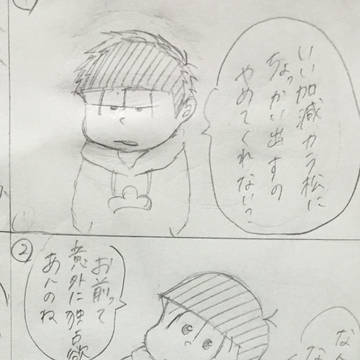 いい加減カラ松に
ちょっかい出すの
やめてくれない?
②
お前って
意外に独占欲
あんのね